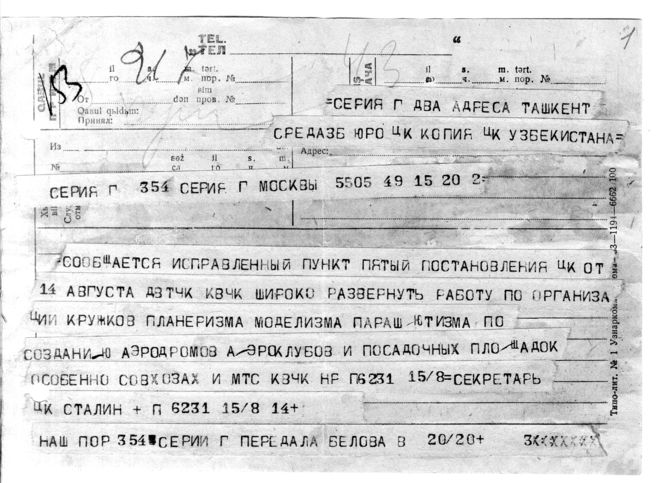 TEL.
ТЕЛ
217
il s. m. tərt.
го ч. м. пор. №
От
Qəbul qıldım:
Принял:
Из
№
il s. m. tərt.
го ч. м. пор. №
Адрес:
=СЕРИЯ Г ДВА АДРЕСА ТАШКЕНТ
СРЕДАЗБ ЮРО ЦК КОПИЯ ЦК УЗБЕКИСТАНА=
СЕРИЯ Г 354 СЕРИЯ Г МОСКВЫ 5505 49 15 20 2=
=СООБЩАЕТСЯ ИСПРАВЛЕННЫЙ ПУНКТ ПЯТЫЙ ПОСТАНОВЛЕНИЯ ЦК ОТ
14 АВГУСТА ДВТЧК КВЧК ШИРОКО РАЗВЕРНУТЬ РАБОТУ ПО ОРГАНИЗА
ЦИИ КРУЖКОВ ПЛАНЕРИЗМА МОДЕЛИЗМА ПАРАШ ЮТИЗМА ПО
СОЗДАНИ Ю АЭРОДРОМОВ А ЭРОКЛУБОВ И ПОСАДОЧНЫХ ПЛОЩАДОК
ОСОБЕННО СОВХОЗАХ И МТС КВЧК НР П6231 15/8=СЕКРЕТАРЬ
ЦК СТАЛИН + П 6231 15/8 14+
НАШ ПОР 354 СЕРИИ Г ПЕРЕДАЛА БЕЛОВА В 20/20+
Типо-лит. № 1 Узнарком